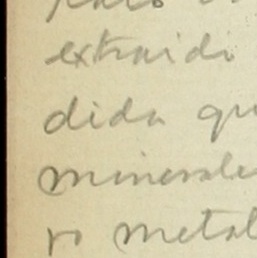 extraidi
dida qu
minerale
ro metal